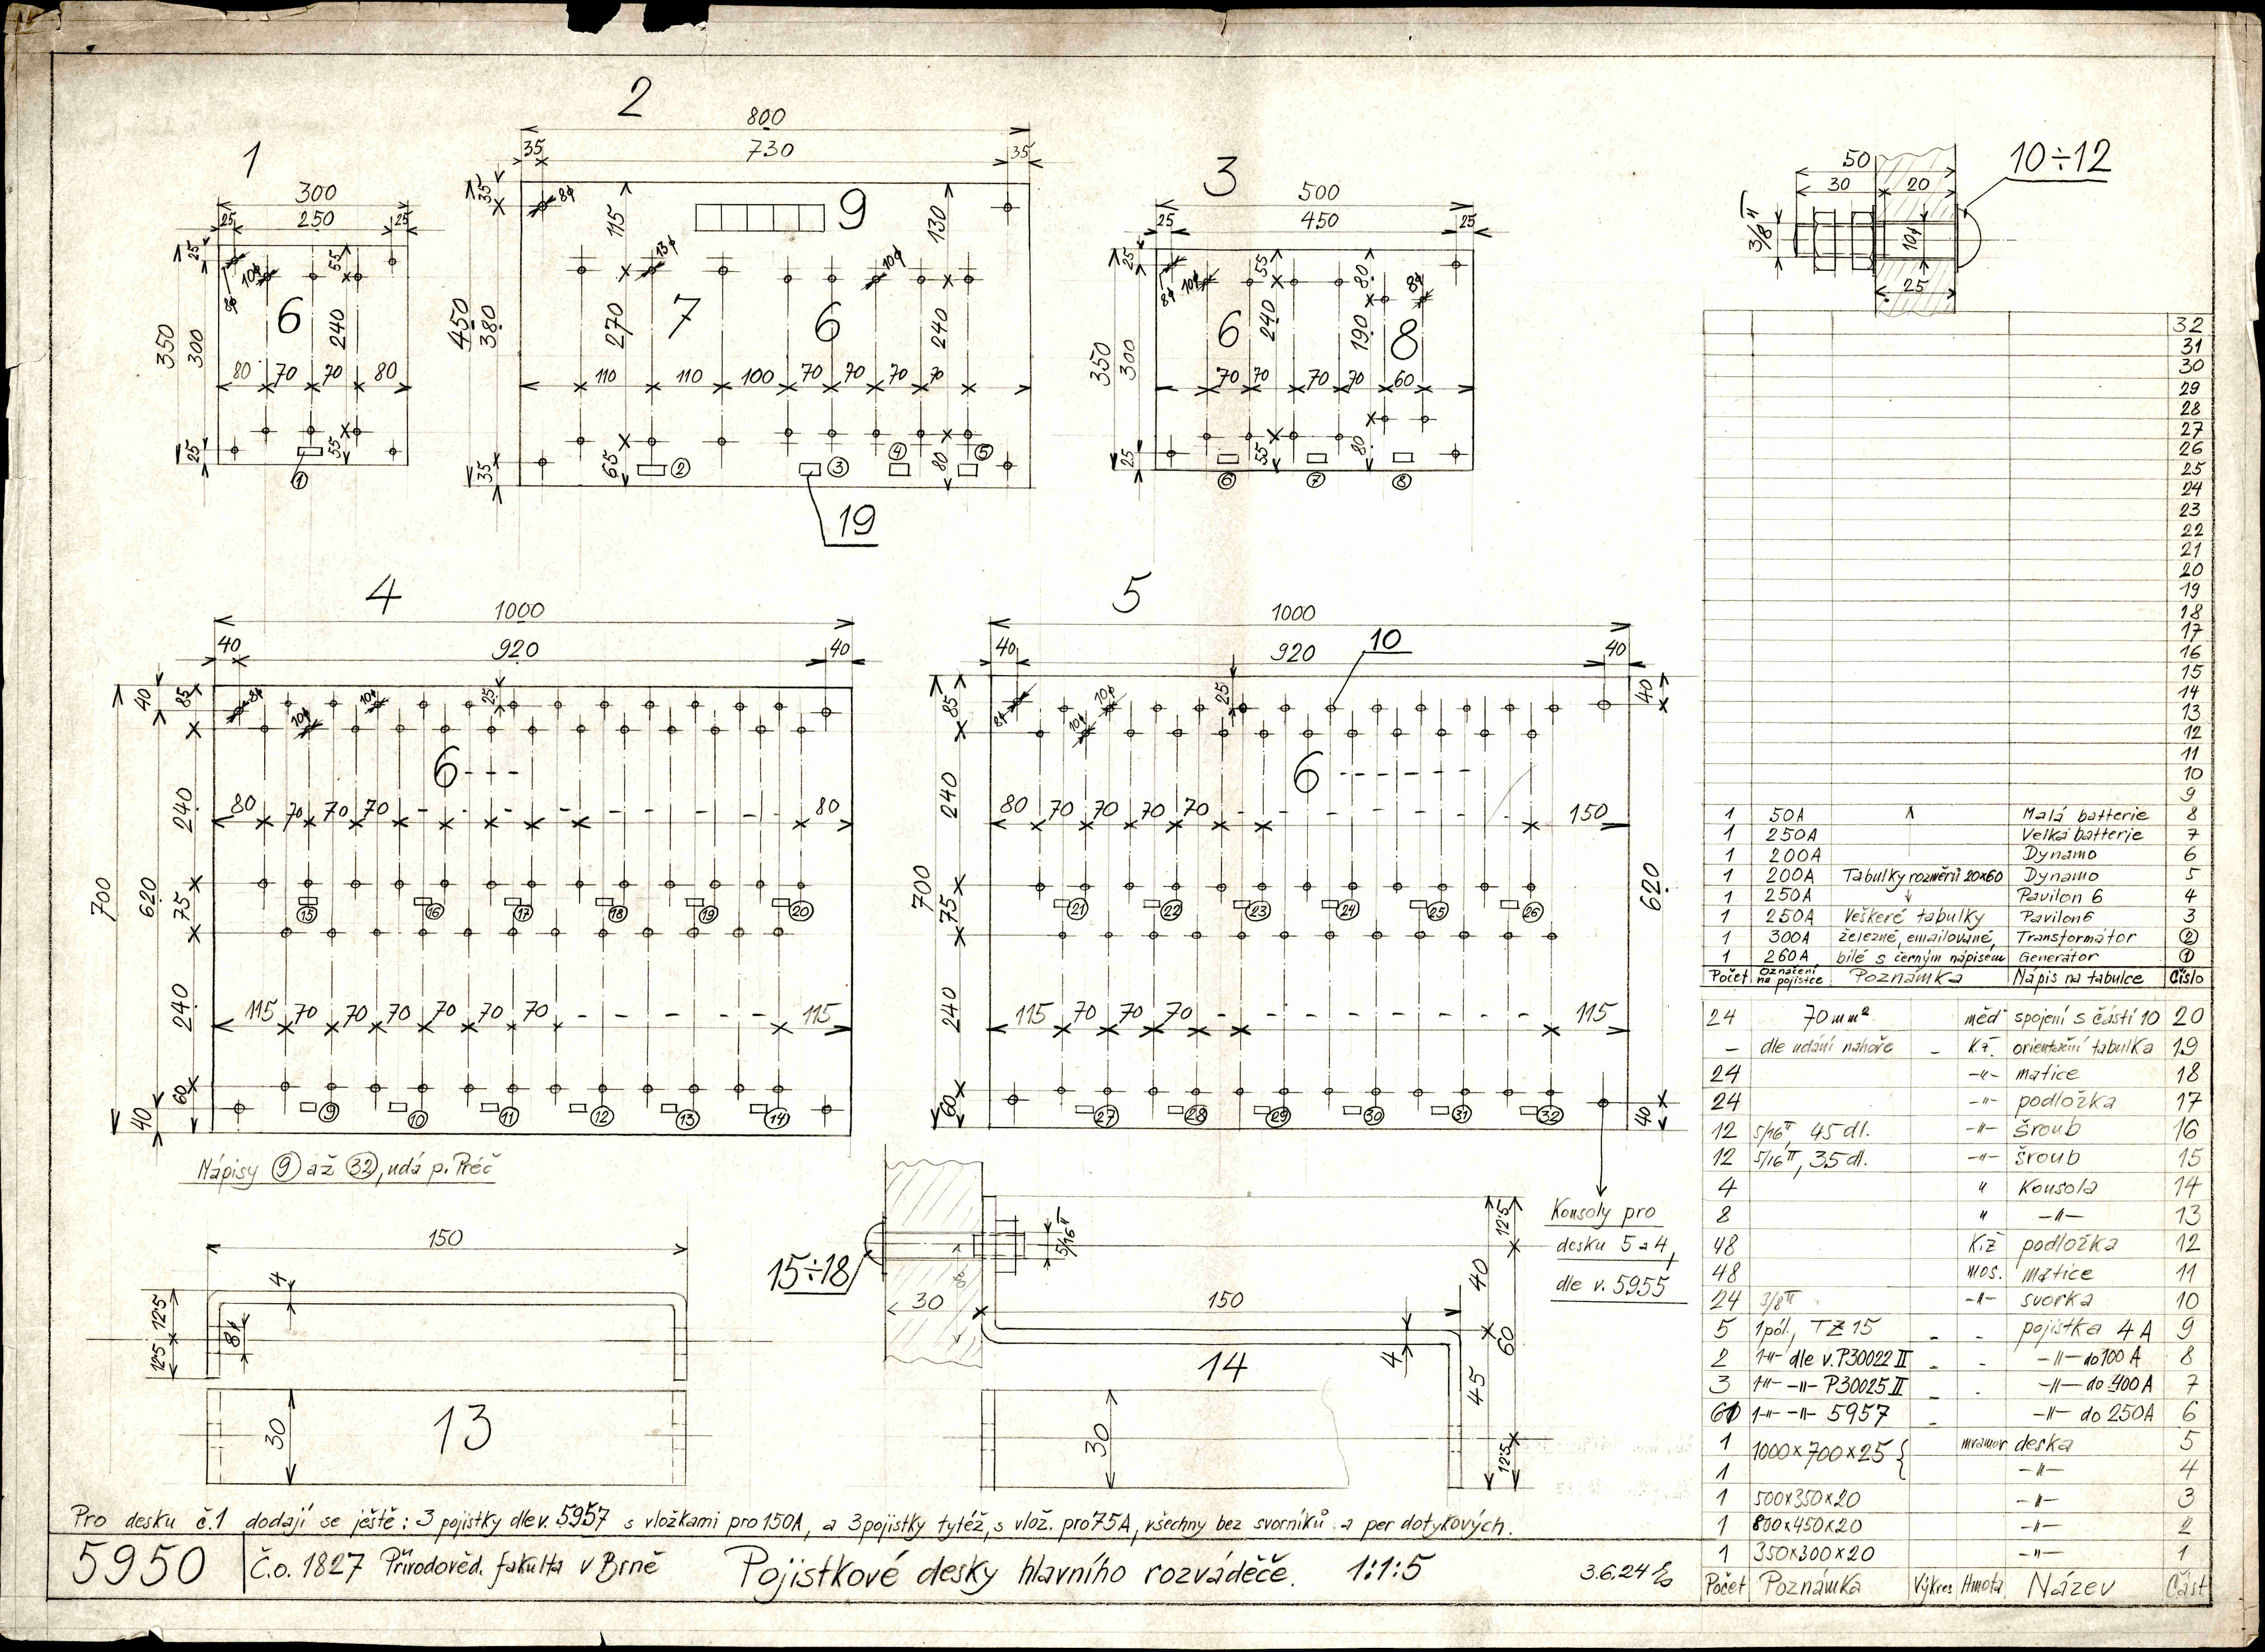 1
300
25 250 25
25
10φ
8φ
55
6
350
300
240
80 70 70 80
25
55
①
2
800
35 730 35
35
8φ
115
9
130
13φ
10φ
450
380
270
7
6
240
110 110 100 70 70 70 70
65
②
③
④
⑤
80
35
19
3
500
25 450 25
25
8φ
10φ
55
80
8φ
350
300
6
240
190
8
70 70 70 70 60
25
55
80
⑥ ⑦ ⑧
50
30 20
3/8"
10φ
25
10÷12
4
1000
40 920 40
40
85
8φ
10φ
10φ
25
6 - - -
240
80 70 70 70 - - - - - - - 80
700
620
75
⑮ ⑯ ⑰ ⑱ ⑲ ⑳
240
115 70 70 70 70 70 - - - - - 115
60
40
⑨ ⑩ ⑪ ⑫ ⑬ ⑭
Nápisy ⑨ až ㉜, udá p. Préč
5
1000
40 920 40
10
85
8φ
10φ
10φ
25
40
6 - - - - - -
240
80 70 70 70 70 - - - - - - 150
700
75
620
㉑ ㉒ ㉓ ㉔ ㉕ ㉖
240
115 70 70 70 - - - - - - - 115
60
40
㉗ ㉘ ㉙ ㉚ ㉛ ㉜
Konsoly pro
desku 5 a 4,
dle v. 5955
150
4
12·5
12·5
8φ
30
13
15÷18
5/16"
30
150
4
14
12·5
40
60
45
12·5
30
32
31
30
29
28
27
26
25
24
23
22
21
20
19
18
17
16
15
14
13
12
11
10
9
1 50A Malá batterie 8
1 250A Velká batterie 7
1 200A Dynamo 6
1 200A Tabulky rozměrů 20×60 Dynamo 5
1 250A Pavilon 6 4
1 250A Veškeré tabulky Pavilon 6 3
1 300A železné, emailované, Transformátor ②
1 260A bílé s černým nápisem Generátor ①
Počet Označení na pojistce Poznámka Nápis na tabulce Číslo
24 70 mm² měď spojení s částí 10 20
- dle udání nahoře - K.ž. orientační tabulka 19
24 -"- matice 18
24 -"- podložka 17
12 5/16", 45 dl. -"- šroub 16
12 5/16", 35 dl. -"- šroub 15
4 " Konsola 14
8 " -"- 13
48 K.ž podložka 12
48 mos. matice 11
24 3/8" -"- svorka 10
5 1pól., TZ 15 - - pojistka 4 A 9
2 1-"- dle v. P30022 II - - -"- do 100 A 8
3 1-"- -"- P30025 II - - -"- do 400 A 7
61 1-"- -"- 5957 - -"- do 250A 6
1 1000×700×25 { mramor deska 5
1 -"- 4
1 500×350×20 -"- 3
1 800×450×20 -"- 2
1 350×300×20 -"- 1
Počet Poznámka Výkres Hmota Název Část
Pro desku č.1 dodají se ještě: 3 pojistky dle v. 5957 s vložkami pro 150A, a 3 pojistky tytéž, s vlož. pro 75A, všechny bez svorníků a per dotykových.
5950 Č.o. 1827 Přírodověd. fakulta v Brně Pojistkové desky hlavního rozváděče. 1:1:5 3.6.24